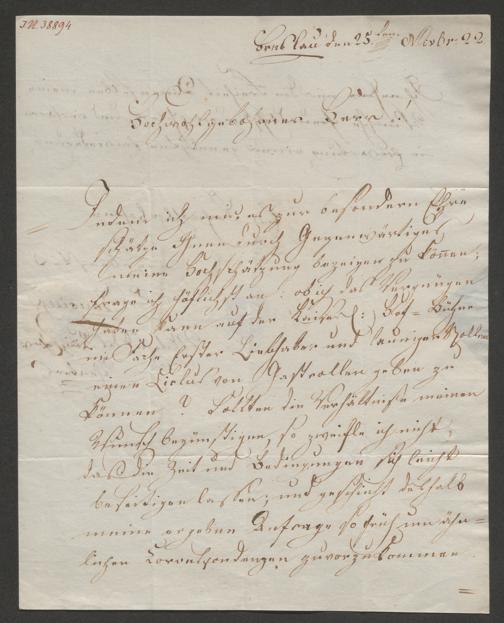 I.N. 38894
Breslau den 25ten Novbr. 22
Hochwohlgebohrner Herr!
Indem ich mir es zur besondern Ehre
schätze Ihnen durch Gegenwärtiges
meine Hochschätzung bezeigen zu können,
frage ich höflichst an: ob ich das Vergnügen
haben kann auf der Kaiserl: Hof-Bühne
im Fache Erster Liebhaber und launiger Rollen
einen Ciclus von Gastrollen geben zu
können? Sollten die Verhältnisse meinen
Wunsch begünstigen, so zweifle ich nicht,
daß die Zeit und Bedingungen sich leicht
beseitigen lassen; und geschieht deshalb
meine ergeben Anfrage so früh um ähn-
lichen Correspondenzen zuvorzukommen.